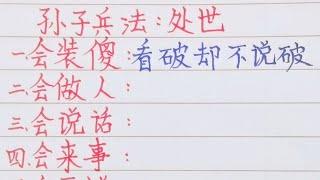 孙子兵法:处世
一.会装傻:看破却不说破
二.会做人:
三.会说话:
四.会来事: